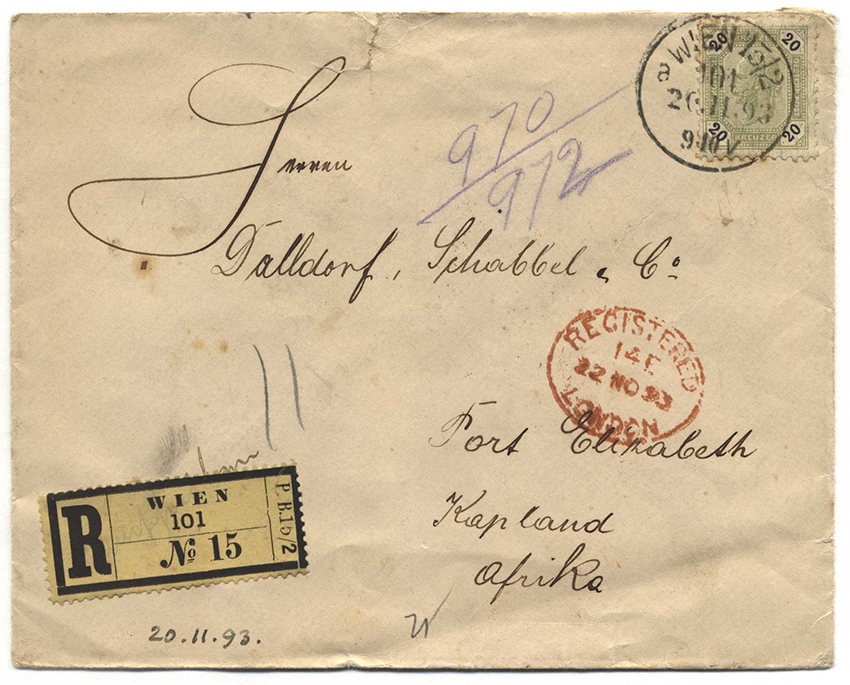 WIEN 15/2
a
101
20.11.93
20
20
20
20
KREUZER
970
972
Herren
Dalldorf, Schabbel & Co
REGISTERED
14E
22 NO 93
LONDON
Port Elizabeth
Kapland
Afrika
R
WIEN
101
No 15
P.B.15/2
20.11.93.